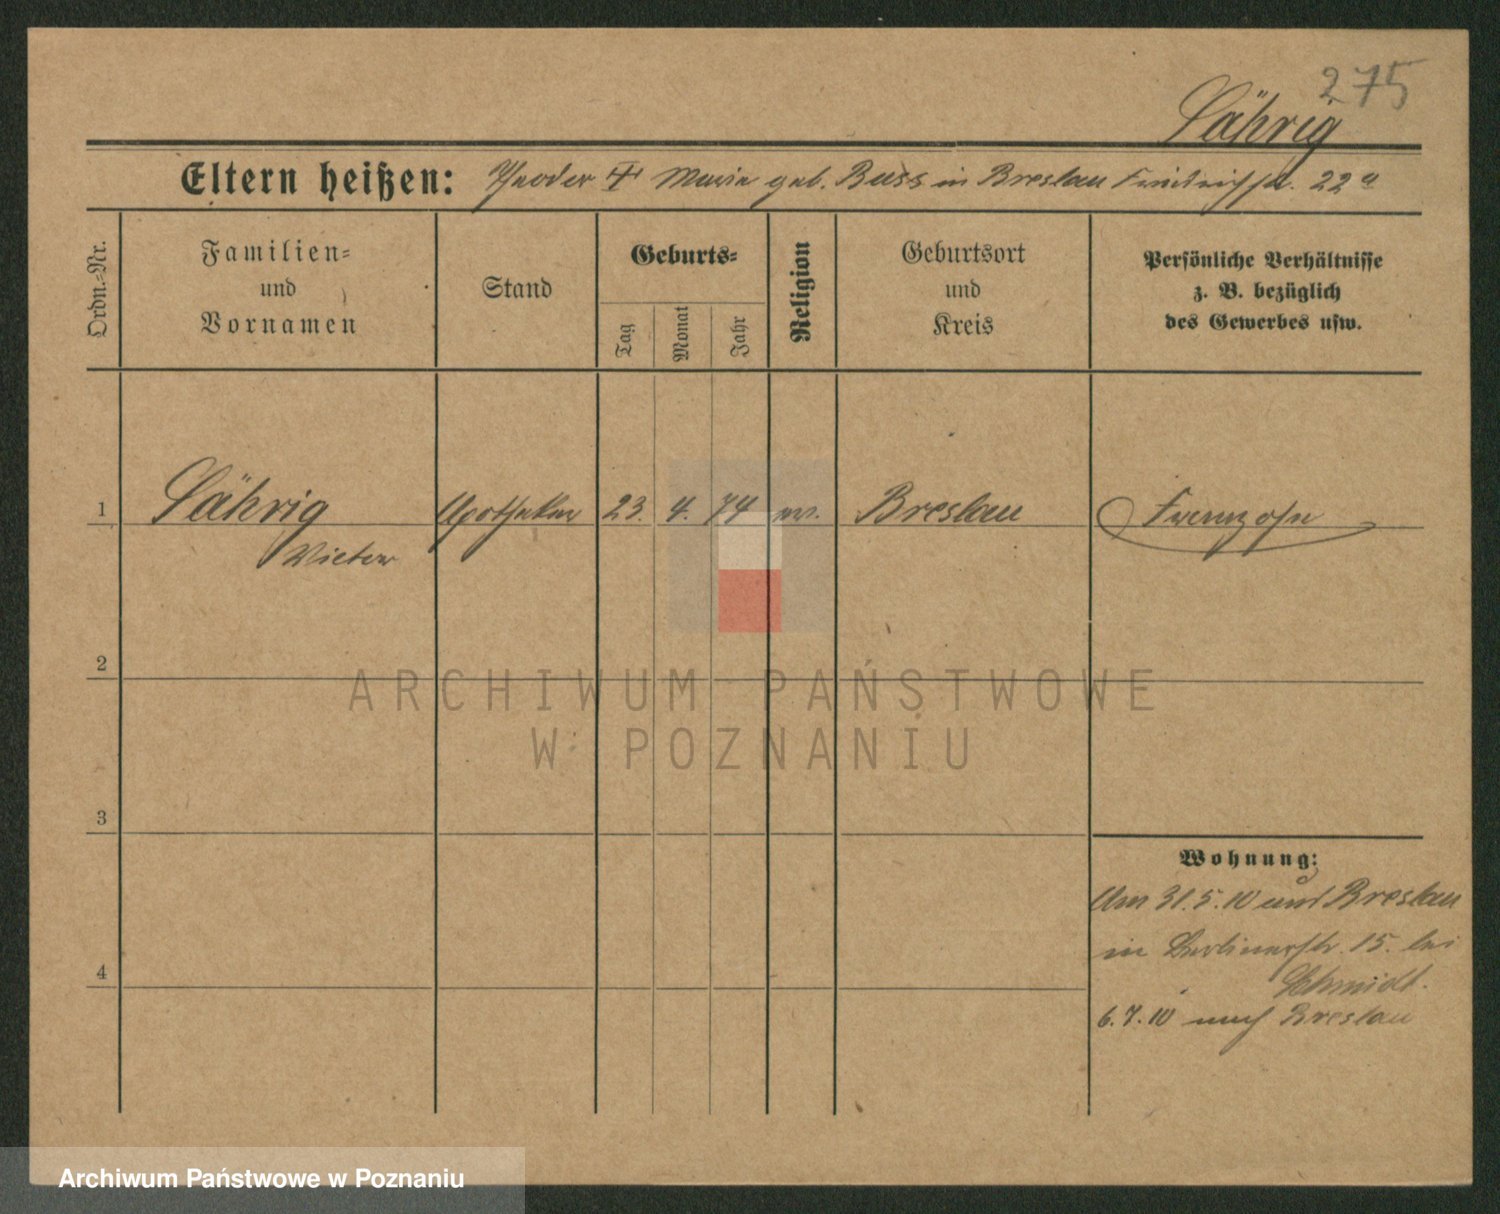 275
Sährig
Eltern heißen: Theodor + Marie geb. Buss in Breslau Friedrichstr. 22a
Ordn.-Nr.
Familien- und Vornamen
Stand
Geburts-
Tag
Monat
Jahr
Religion
Geburtsort und Kreis
Persönliche Verhältnisse
z. B. bezüglich
des Gewerbes usw.
1 Sährig Apotheker 23. 4. 74 ev. Breslau
Victor
2
ARCHIWUM PAŃSTWOWE
W POZNANIU
3
Wohnung:
Am 31.5.10 aus Breslau
in Berlinerstr. 15. bei
4
Schmidt.
6.7.10 nach Breslau
Archiwum Państwowe w Poznaniu